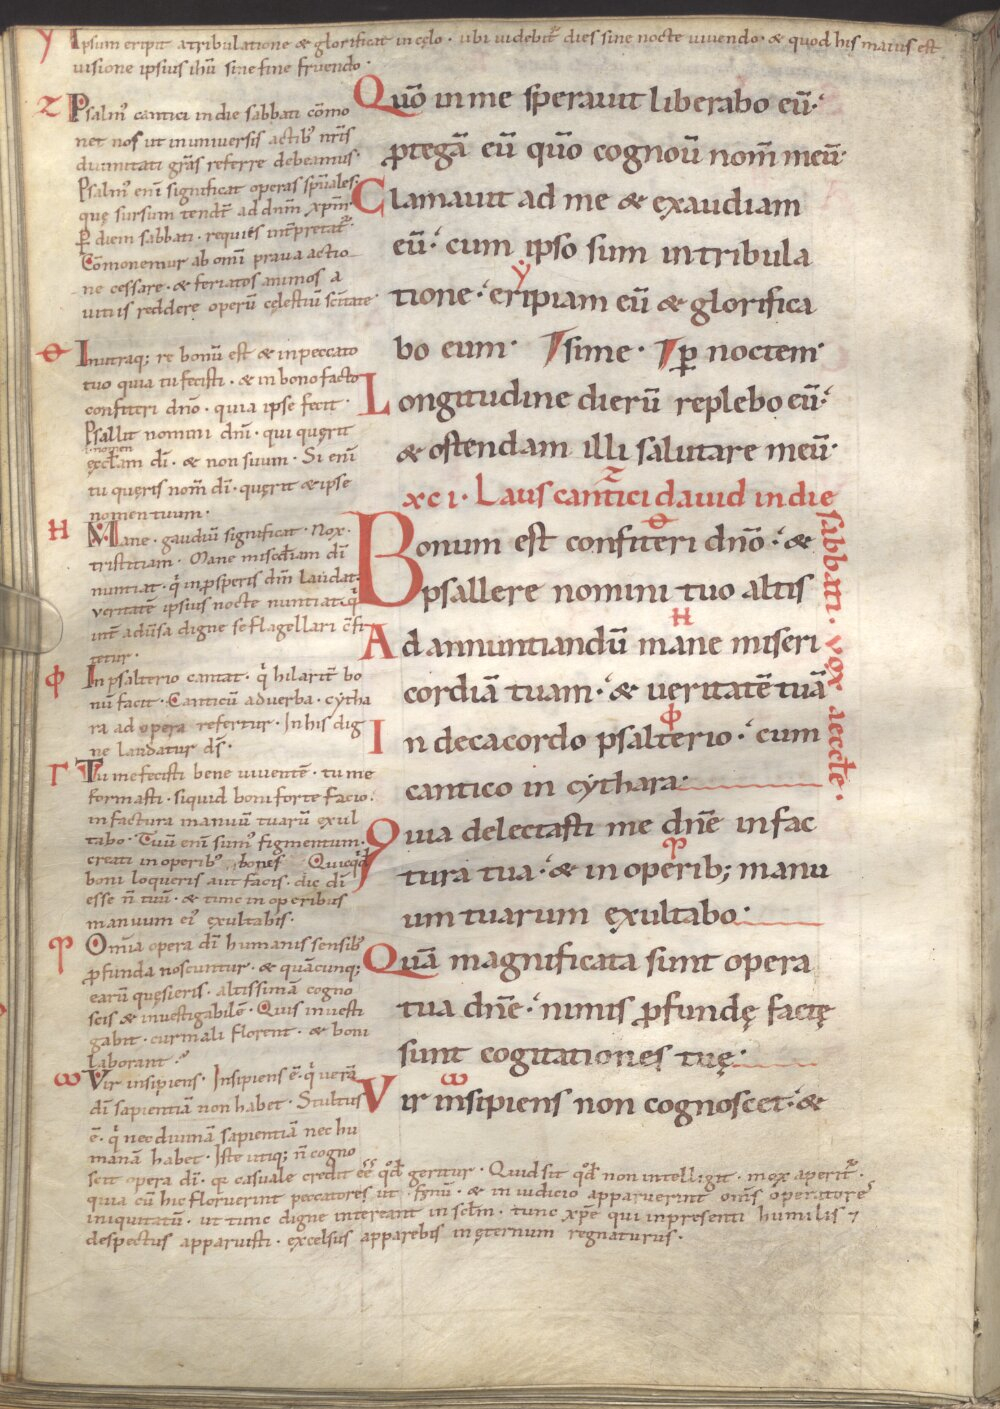 y Ipsum eripit atribulatione & glorificat incęlo · ubi uidebit᷑ dies sine nocte uiuendo · & quod his maius est
uisione ipsius ihũ sine fine fruendo ·
Z Psalm᷒ cantici indie sabbati cõmo
net nos ut inuniuersis actib᷒ nr̃is
diuinitati grãs referre debeamus ·
Psalm᷒ enĩ significat operas spũales ·
quę sursum tendt̃ ad dnm̃ xpm̃ ·
ꝑ diem sabbati · requies int̃pretat᷑ ·
Cõmonemur ab omĩ praua actio
ne cessare · & feriatos animos a
uitiis reddere operũ cęlestiũ scitate
Θ Inutraq; re bonũ est & inpeccato
tuo quia tu fecisti · & in bono facto
confiteri dnõ · quia ipse fecit ·
Psallit nomini dnĩ · qui quęrit
nomen
dĩ · & non suum · Si enĩ
tu quęris nom̃ dĩ · quęrit & ipse
nomen tuum ·
H Mane · gaudiũ significat · Nox ·
tristitiam · Mane misc̃diam dĩ
nuntiat · q̇ inꝓsperis dm̃ laudat ·
ueritatẽ ipsius nocte nuntiat · q̇
int̃ aduersa digne se flagellari
tetur ·
Φ In psalterio cantat · q̇ hilarit̃ bo
nũ facit · Canticũ ad uerba · cytha
ra ad opera refertur · In his dig
ne laudatur dš ·
Γ Tu me fecisti bene uiuentẽ · tu me
formasti · siquid boni forte facio ·
in factura manuũ tuarũ exul
tabo · Tuũ enĩ sum᷒ figmentum ·
creati in operib᷒ bonis Quicqd̃
boni loqueris aut facis · dic dĩ
esse ñ tuũ · & tunc in operibus
manuum ei᷒ exultabis ·
Omĩa opera dĩ humanis sensib᷒
ꝓfunda noscuntur · & quãcunq;
earũ quęsieris · altissimã cogno
scis & inuestigabilẽ · Quis inuesti
gabit · cur mali florent · & boni
laborant ?
ω Vir insipiens · Insipiens ẽ · q̇ uerã
dĩ sapientiã non habet · Stultus
ẽ · q̇ nec diuinã sapientiã nec hu
manã habet · Iste utiq; ñ cogno
scit opera dĩ · qr casuale credit eẽ qd̃ geritur · Quid sit qd̃ non intelligit · mox aperit᷑ ·
quia cũ hic floruerint peccatores ut fęnũ · & in iudicio apparuerint oms̃ operatores
iniquitatũ · ut tunc digne intereant in sclm̃ · tunc xpẽ qui inpresenti humilis ⁊
despectus apparuisti · excelsus apparebis inęternum regnaturus ·
Quõ inme sperauit liberabo eũ ·
ꝓtegã eũ quõ cognoũ nom̃ meũ ·
Clamauit ad me & exaudiam
eũ · cum ipso sum intribula
y
tione · eripiam eũ & glorifica
bo eum · sime · ꝑ noctem ·
Longitudine dierũ replebo eũ ·
& ostendam illi salutare meũ ·
xci · Laus cantici dauid in die
sabbati · vox aeccłe ·
Bonum est confiteri dnõ · &
psallere nomini tuo altis
Ad annuntiandũ mane miseri
cordiã tuam · & ueritatẽ tuã
In decacordo psalterio · cum
cantico in cythara ·
Quia delectasti me dnẽ infac
tura tua · & in operib; manu
um tuarum exultabo ·
Quã magnificata sunt opera
tua dnẽ · nimis ꝓfundę factę
sunt cogitationes tuę ·
Vir insipiens non cognoscet · &